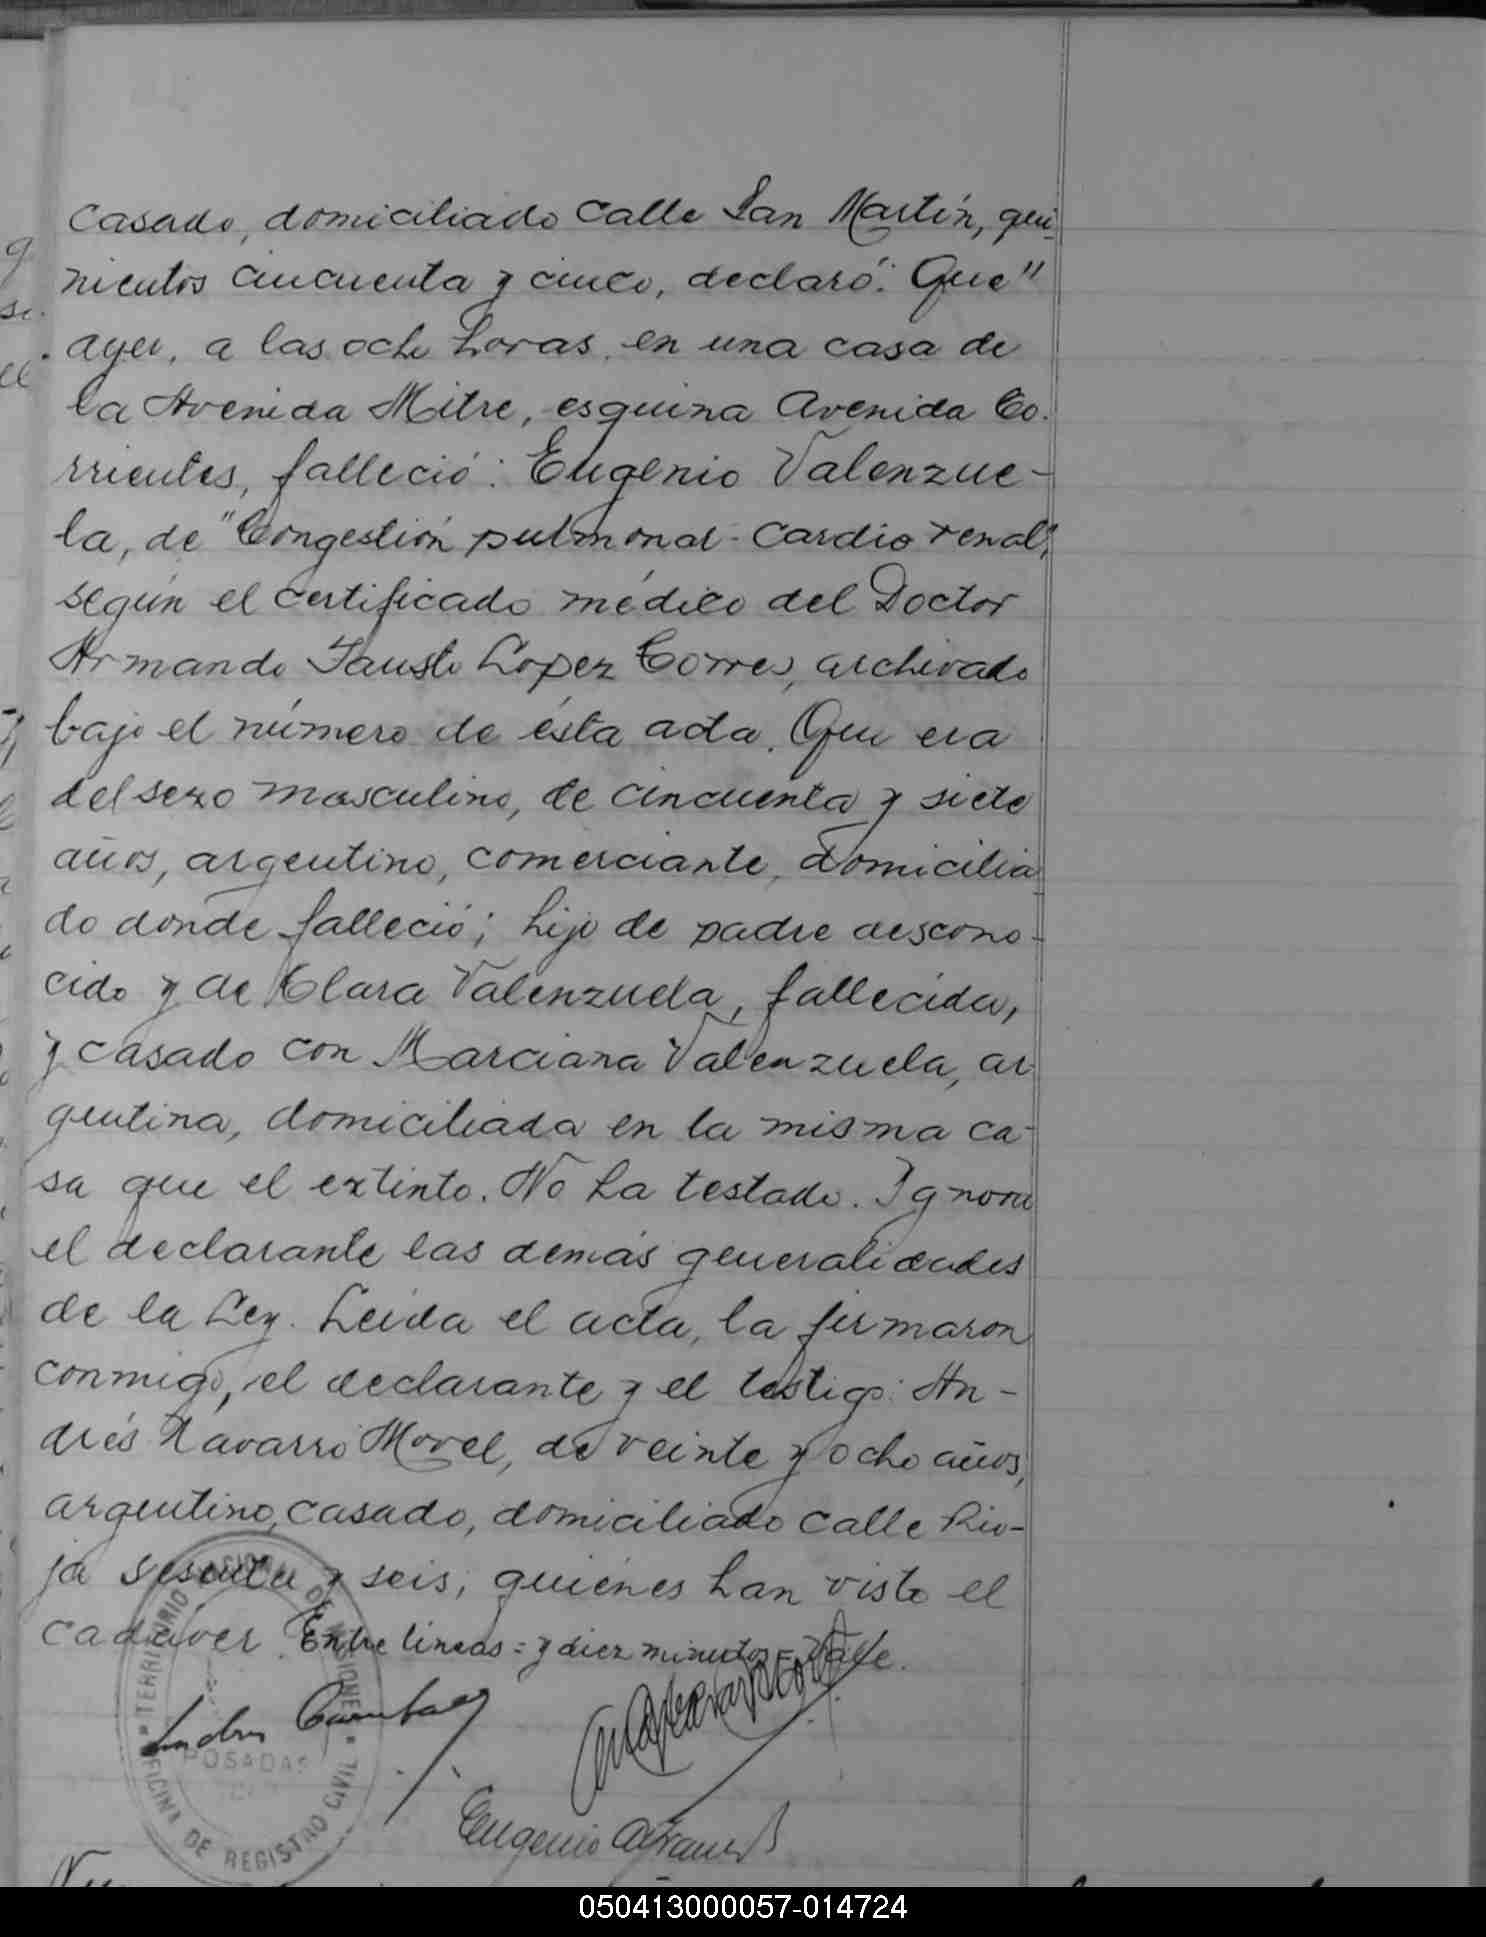 casado, domiciliado calle San Martín, qui-
nientos cincuenta y cinco, declaró: Que"
ayer, a las ocho horas, en una casa de
la Avenida Mitre, esquina Avenida Co-
rrientes, falleció: Eugenio Valenzue-
la, de "Congestión pulmonar - cardio renal",
según el certificado médico del Doctor
Armando Fausto Lopez Torres, archivado
bajo el número de ésta acta. Que era
del sexo masculino, de cincuenta y siete
años, argentino, comerciante, domicilia-
do donde falleció; hijo de padre descono-
cido y de Clara Valenzuela, fallecida,
y casado con Marciana Valenzuela, ar-
gentina, domiciliada en la misma ca-
sa que el extinto. No ha testado. Ignora
el declarante las demás generalidades
de la Ley. Leida el acta, la firmaron
conmigo, el declarante y el testigo: An-
drés Navarro Morel, de veinte y ocho años,
argentino, casado, domiciliado calle Rio-
ja sesenta y seis, quiénes han visto el
cadáver. Entre lineas = y diez minutos = Vale.
TERRITORIO NACIONAL DE MISIONES
POSADAS
OFICINA DE REGISTRO CIVIL
Eugenio
050413000057-014724